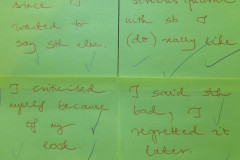 since I
wanted to
say sth else.
serious
with sb I
(do) really like
I criticised
myself because
of my
look.
I said sth
bad, I
regretted it
later.